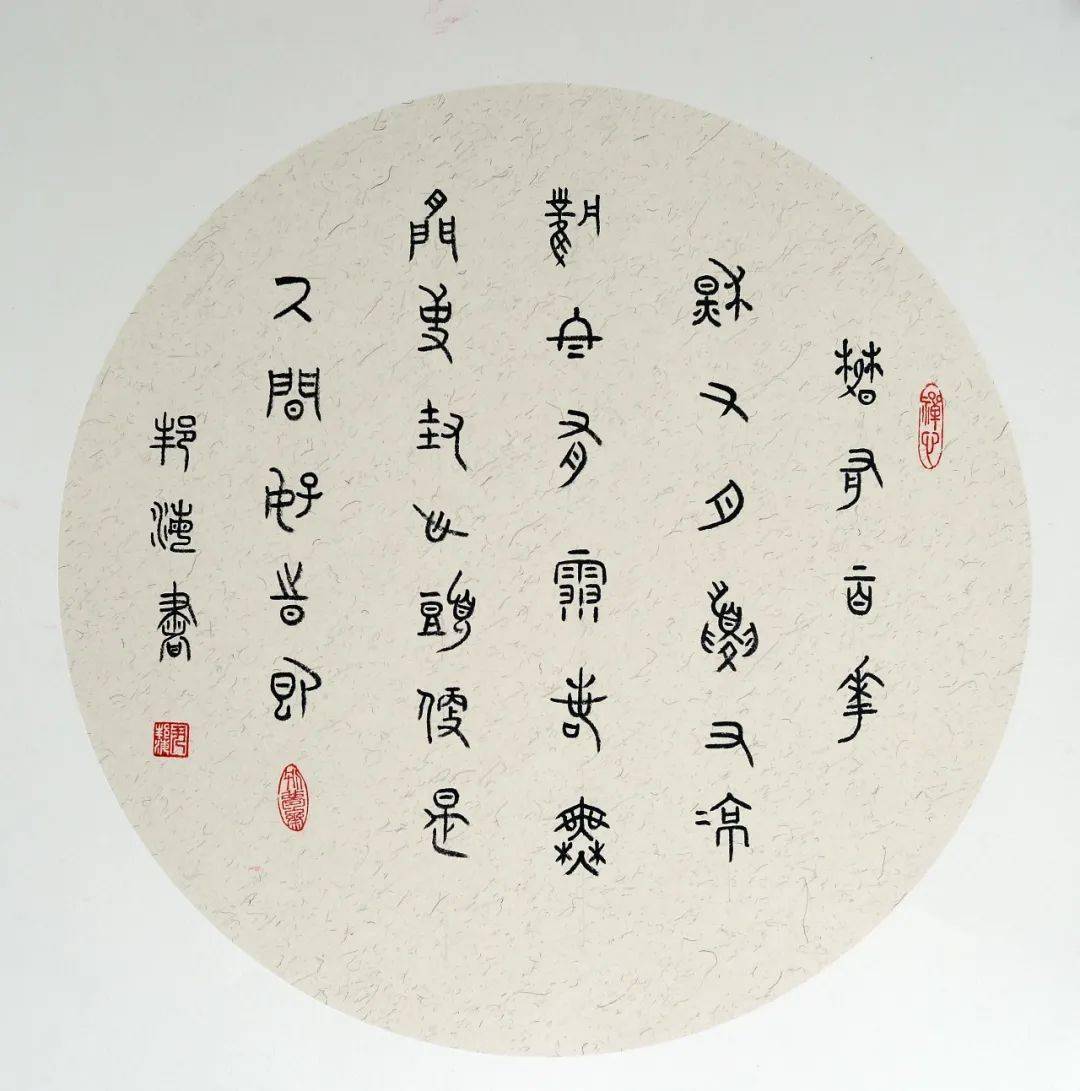 禪心
春有百花
秋有月夏有涼
風冬有雪若無
閒事挂心頭便是
人間好時節
邦海書